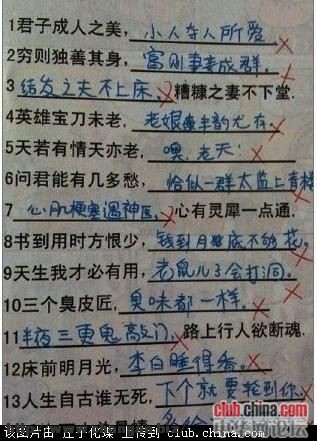 1君子成人之美，小人夺人所爱
2穷则独善其身，富则妻妾成群.
3 结发之夫不上床，糟糠之妻不下堂.
4英雄宝刀未老，老娘丰韵尤存.
5天若有情天亦老，噢，老天!
6问君能有几多愁，恰似一群太监上青楼
7 心肌梗塞遇神医，心有灵犀一点通.
8书到用时方恨少，钱到月底不够花.
9天生我才必有用，老鼠儿子会打洞.
10三个臭皮匠，臭味都一样.
11半夜三更鬼敲门，路上行人欲断魂.
12床前明月光，李白睡得香.
13人生自古谁无死，下个就要轮到你.
club.china.com
中华网论坛
该图片由 上传到 club.china.com